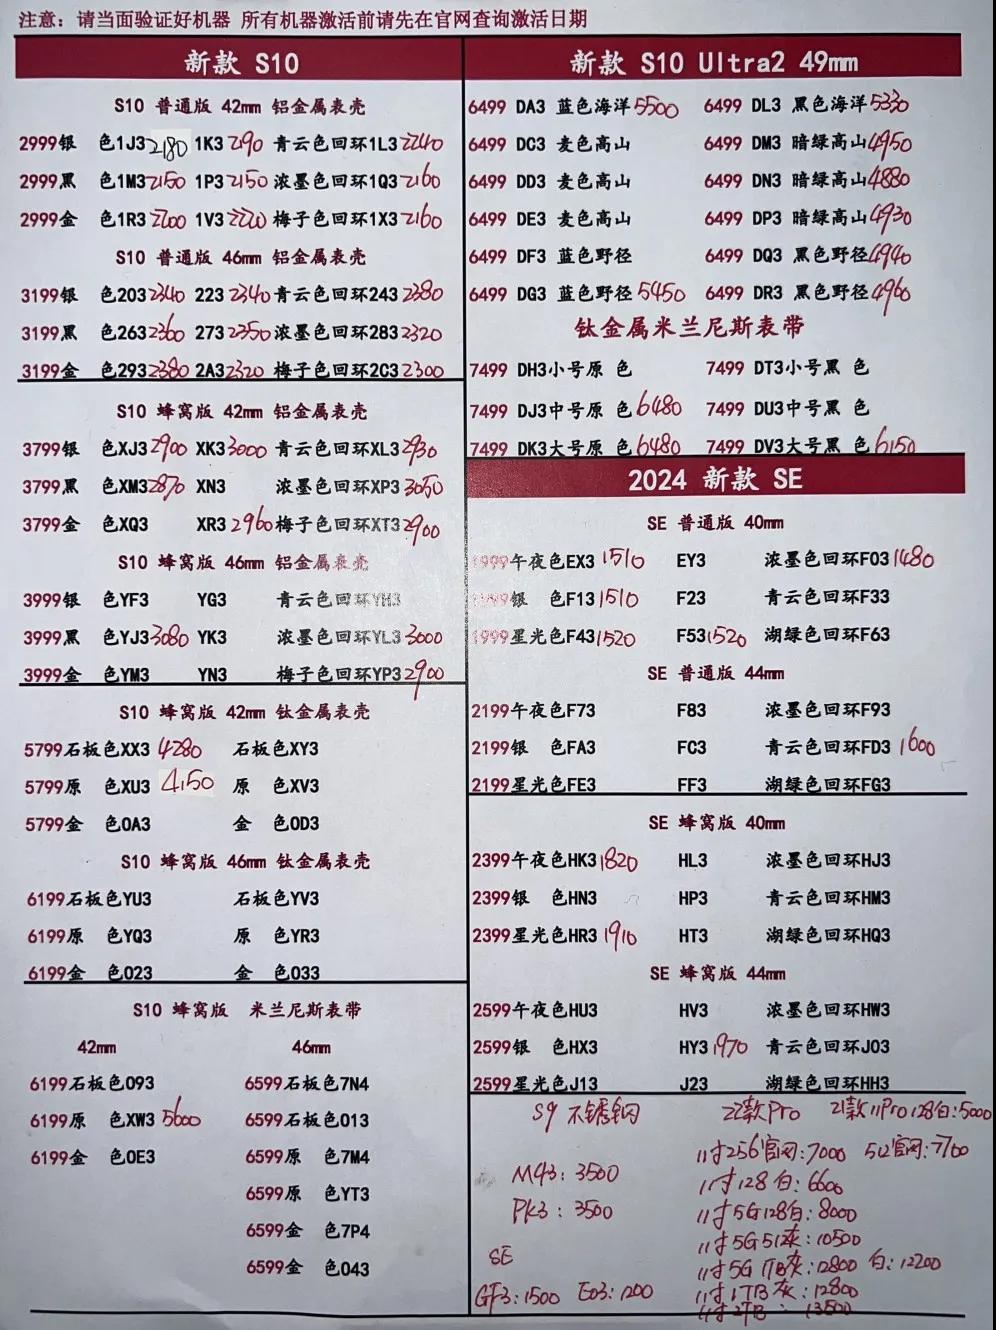 注意：请当面验证好机器 所有机器激活前请先在官网查询激活日期
新款 S10
S10 普通版 42mm 铝金属表壳
2999银 色1J3 2180 1K3 2190 青云色回环1L3 2240
2999黑 色1M3 2150 1P3 2150 浓墨色回环1Q3 2160
2999金 色1R3 2200 1V3 2220 梅子色回环1X3 2160
S10 普通版 46mm 铝金属表壳
3199银 色203 2340 223 2340 青云色回环243 2380
3199黑 色263 2360 273 2350 浓墨色回环283 2320
3199金 色293 2380 2A3 2320 梅子色回环2C3 2300
S10 蜂窝版 42mm 铝金属表壳
3799银 色XJ3 2900 XK3 3000 青云色回环XL3 2930
3799黑 色XM3 2870 XN3 浓墨色回环XP3 3050
3799金 色XQ3 XR3 2960 梅子色回环XT3 2900
S10 蜂窝版 46mm 铝金属表壳
3999银 色YF3 YG3 青云色回环YH3
3999黑 色YJ3 3080 YK3 浓墨色回环YL3 3000
3999金 色YM3 YN3 梅子色回环YP3 2900
S10 蜂窝版 42mm 钛金属表壳
5799石板色XX3 4280 石板色XY3
5799原 色XU3 4150 原 色XV3
5799金 色0A3 金 色0D3
S10 蜂窝版 46mm 钛金属表壳
6199石板色YU3 石板色YV3
6199原 色YQ3 原 色YR3
6199金 色023 金 色033
S10 蜂窝版 米兰尼斯表带
42mm 46mm
6199石板色093 6599石板色7N4
6199原 色XW3 5600 6599石板色013
6199金 色0E3 6599原 色7M4
6599原 色YT3
6599金 色7P4
6599金 色043
新款 S10 Ultra2 49mm
6499 DA3 蓝色海洋 5500 6499 DL3 黑色海洋 5330
6499 DC3 麦色高山 6499 DM3 暗绿高山 4950
6499 DD3 麦色高山 6499 DN3 暗绿高山 4880
6499 DE3 麦色高山 6499 DP3 暗绿高山 4930
6499 DF3 蓝色野径 6499 DQ3 黑色野径 4940
6499 DG3 蓝色野径 5450 6499 DR3 黑色野径 4960
钛金属米兰尼斯表带
7499 DH3小号原 色 7499 DT3小号黑 色
7499 DJ3中号原 色 6480 7499 DU3中号黑 色
7499 DK3大号原 色 6480 7499 DV3大号黑 色 6150
2024 新款 SE
SE 普通版 40mm
1999午夜色EX3 1510 EY3 浓墨色回环F03 1480
1999银 色F13 1510 F23 青云色回环F33
1999星光色F43 1520 F53 1520 湖绿色回环F63
SE 普通版 44mm
2199午夜色F73 F83 浓墨色回环F93
2199银 色FA3 FC3 青云色回环FD3 1600
2199星光色FE3 FF3 湖绿色回环FG3
SE 蜂窝版 40mm
2399午夜色HK3 1820 HL3 浓墨色回环HJ3
2399银 色HN3 HP3 青云色回环HM3
2399星光色HR3 1910 HT3 湖绿色回环HQ3
SE 蜂窝版 44mm
2599午夜色HU3 HV3 浓墨色回环HW3
2599银 色HX3 HY3 1970 青云色回环J03
2599星光色J13 J23 湖绿色回环HH3
S9 不锈钢
M43：3500
PK3：3500
SE
GF3：1500 E03：1200
22款Pro 21款11Pro128白：5000
11寸256官网：7000 512官网：7700
11寸128白：6600
11寸5G128白：8000
11寸5G512灰：10500
11寸5G 1TB灰：12800 白：12200
11寸1TB灰：12800
11寸2TB：13500